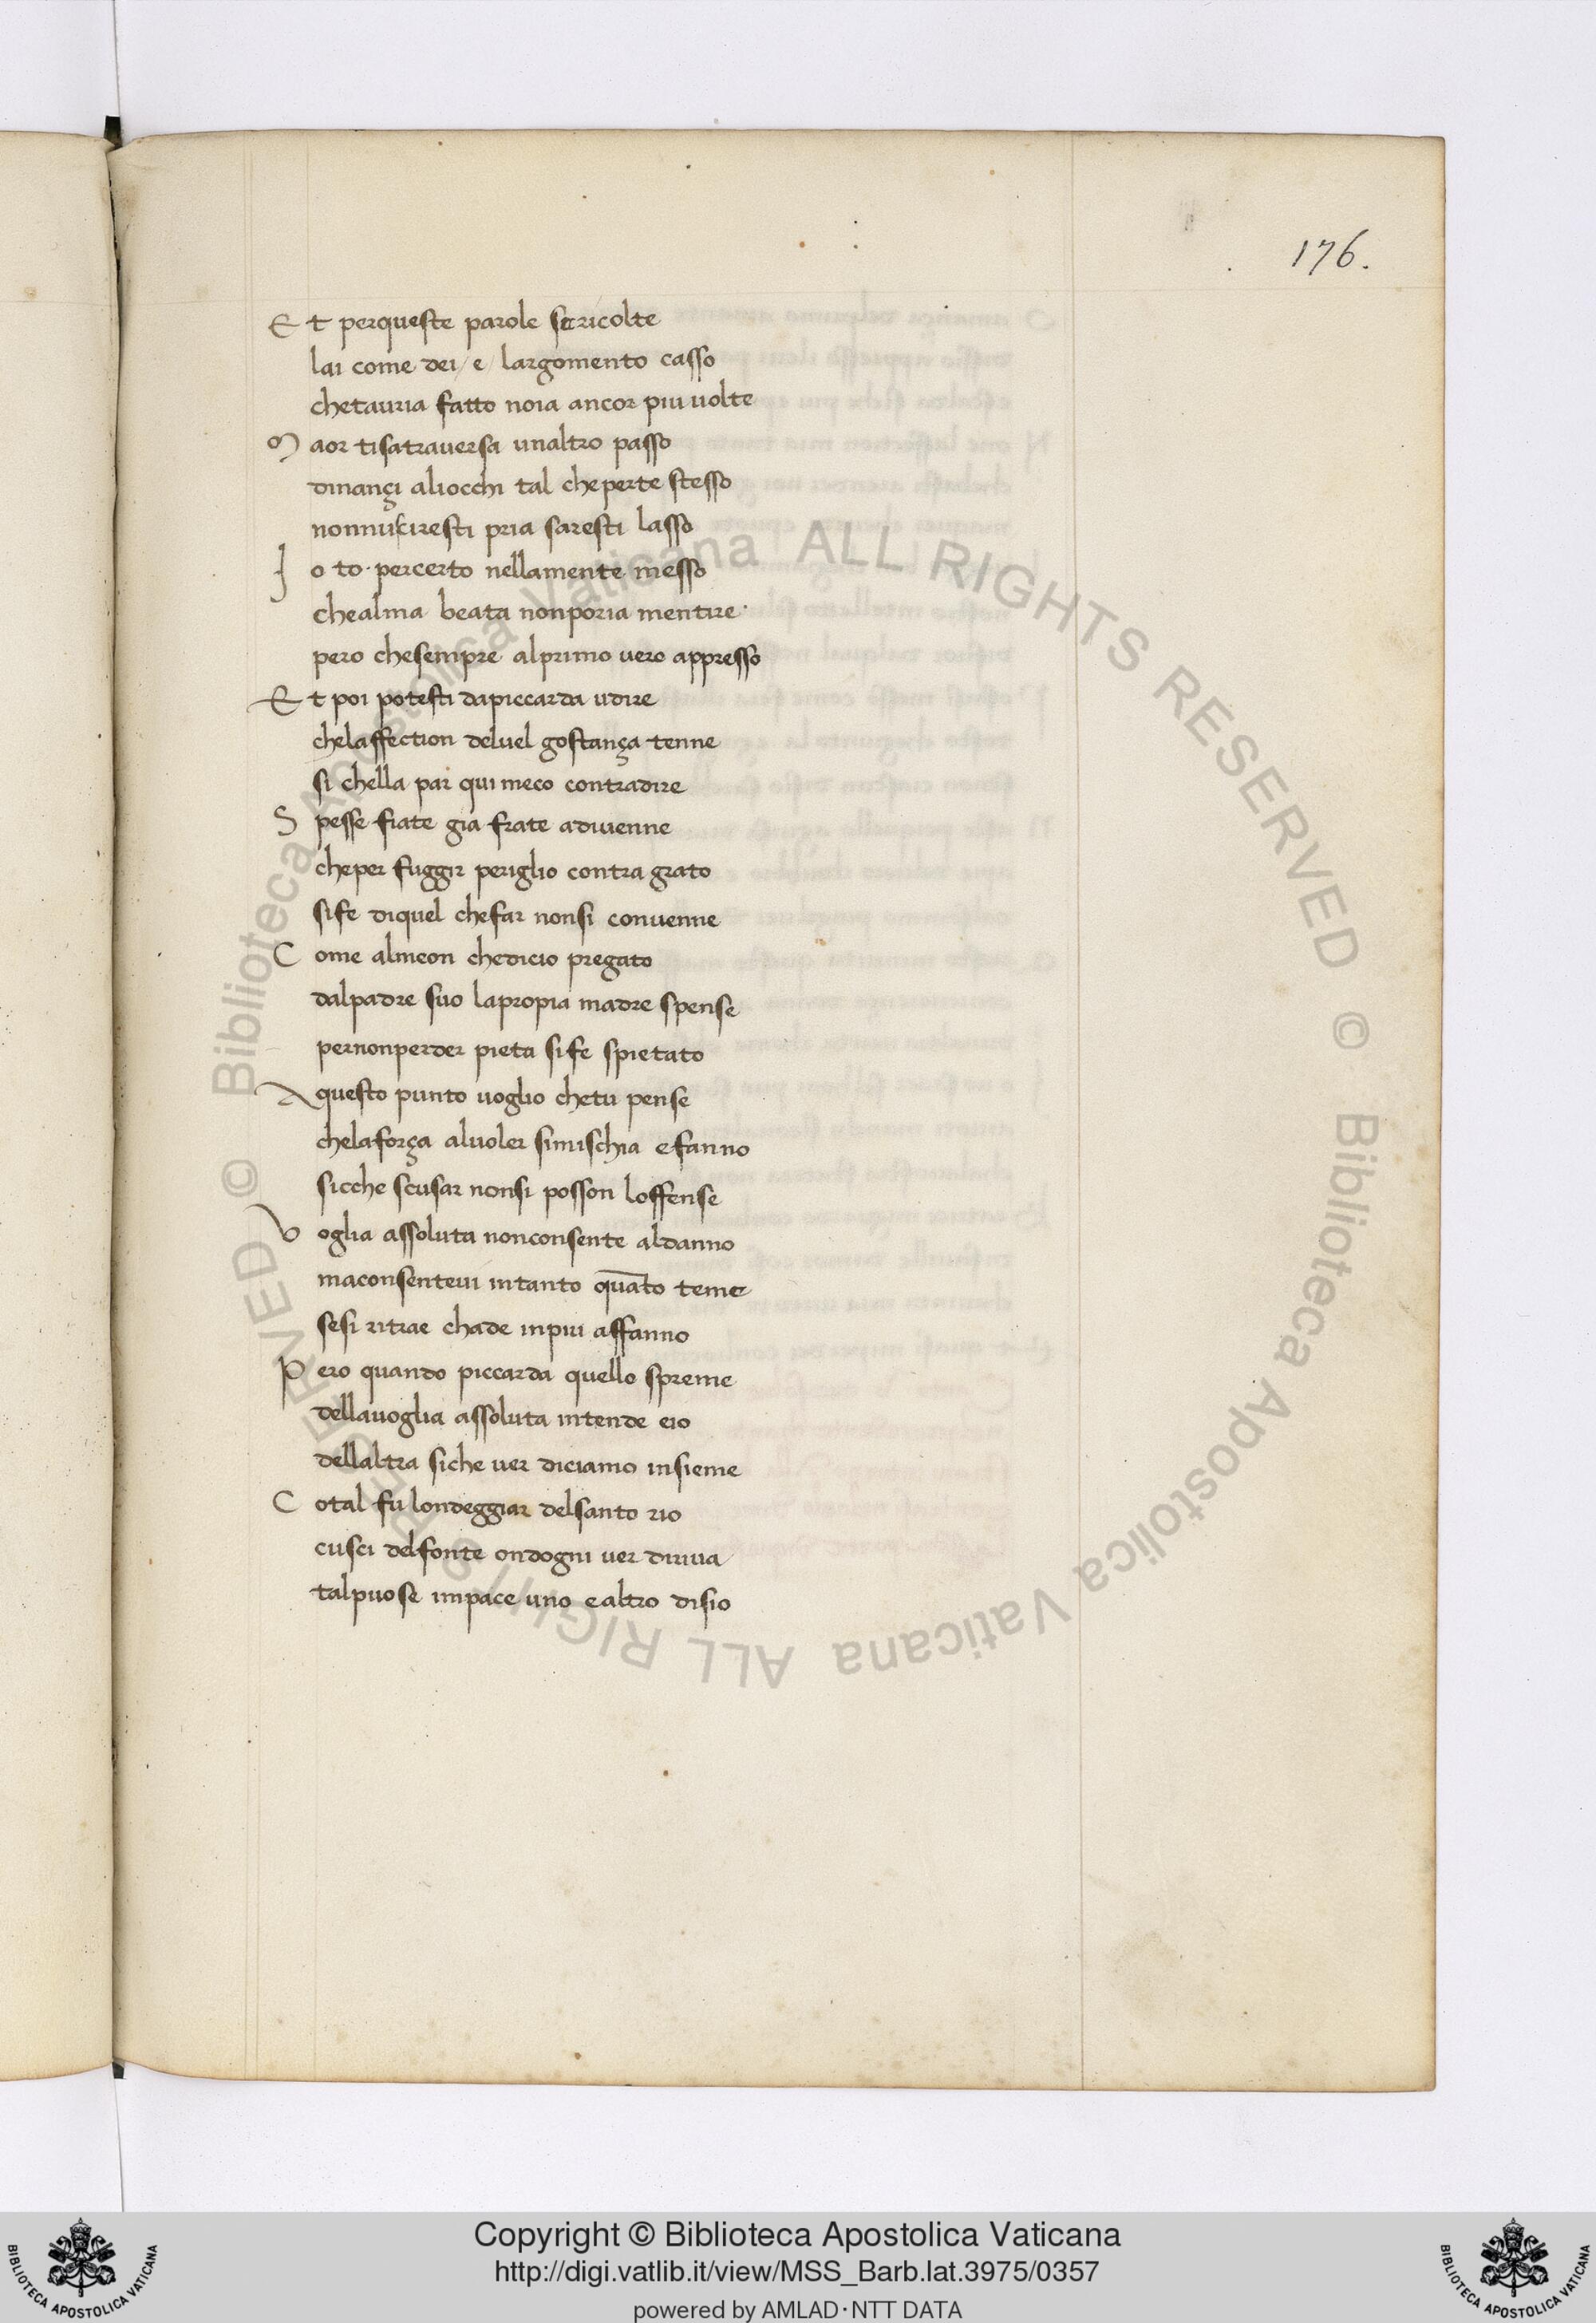 176.
Et perqueste parole se ricolte
lai come dei / e / largomento casso
chetauria fatto noia ancor piu uolte
Maor tisatrauersa unaltro passo
dinançi aliocchi tal cheperte stesso
nonnusciresti pria saresti lasso
Io to percerto nellamente messo
chealma beata nonporia mentire
pero chesempre alprimo uero appresso
Et poi potesti dapiccarda udire
chelaffection deluel gostança tenne
si chella par qui meco contradire
Spesse fiate gia frate adiuenne
cheper fuggir periglio contra grato
sife diquel chefar nonsi conuenne
Come almeon chedicio pregato
dalpadre suo lapropia madre spense
pernonperder pieta sife spietato
Aquesto punto uoglio chetu pense
chelaforça aluoler simischia efanno
sicche scusar nonsi posson loffense
Voglia assoluta nonconsente aldanno
maconsenteui intanto quāto teme
sesi ritrae chade inpiu affanno
Pero quando piccarda quello spreme
dellauoglia assoluta intende eio
dellaltra siche uer diciamo insieme
Cotal fu londeggiar delsanto rio
cusci delfonte ondogni uer diriua
talpuose impace uno ealtro disio
© Biblioteca Apostolica Vaticana ALL RIGHTS RESERVED © Biblioteca Apostolica Vaticana ALL RIGHTS RESERVED
Copyright © Biblioteca Apostolica Vaticana
http://digi.vatlib.it/view/MSS_Barb.lat.3975/0357
powered by AMLAD·NTT DATA
BIBLIOTECA APOSTOLICA VATICANA
BIBLIOTECA APOSTOLICA VATICANA